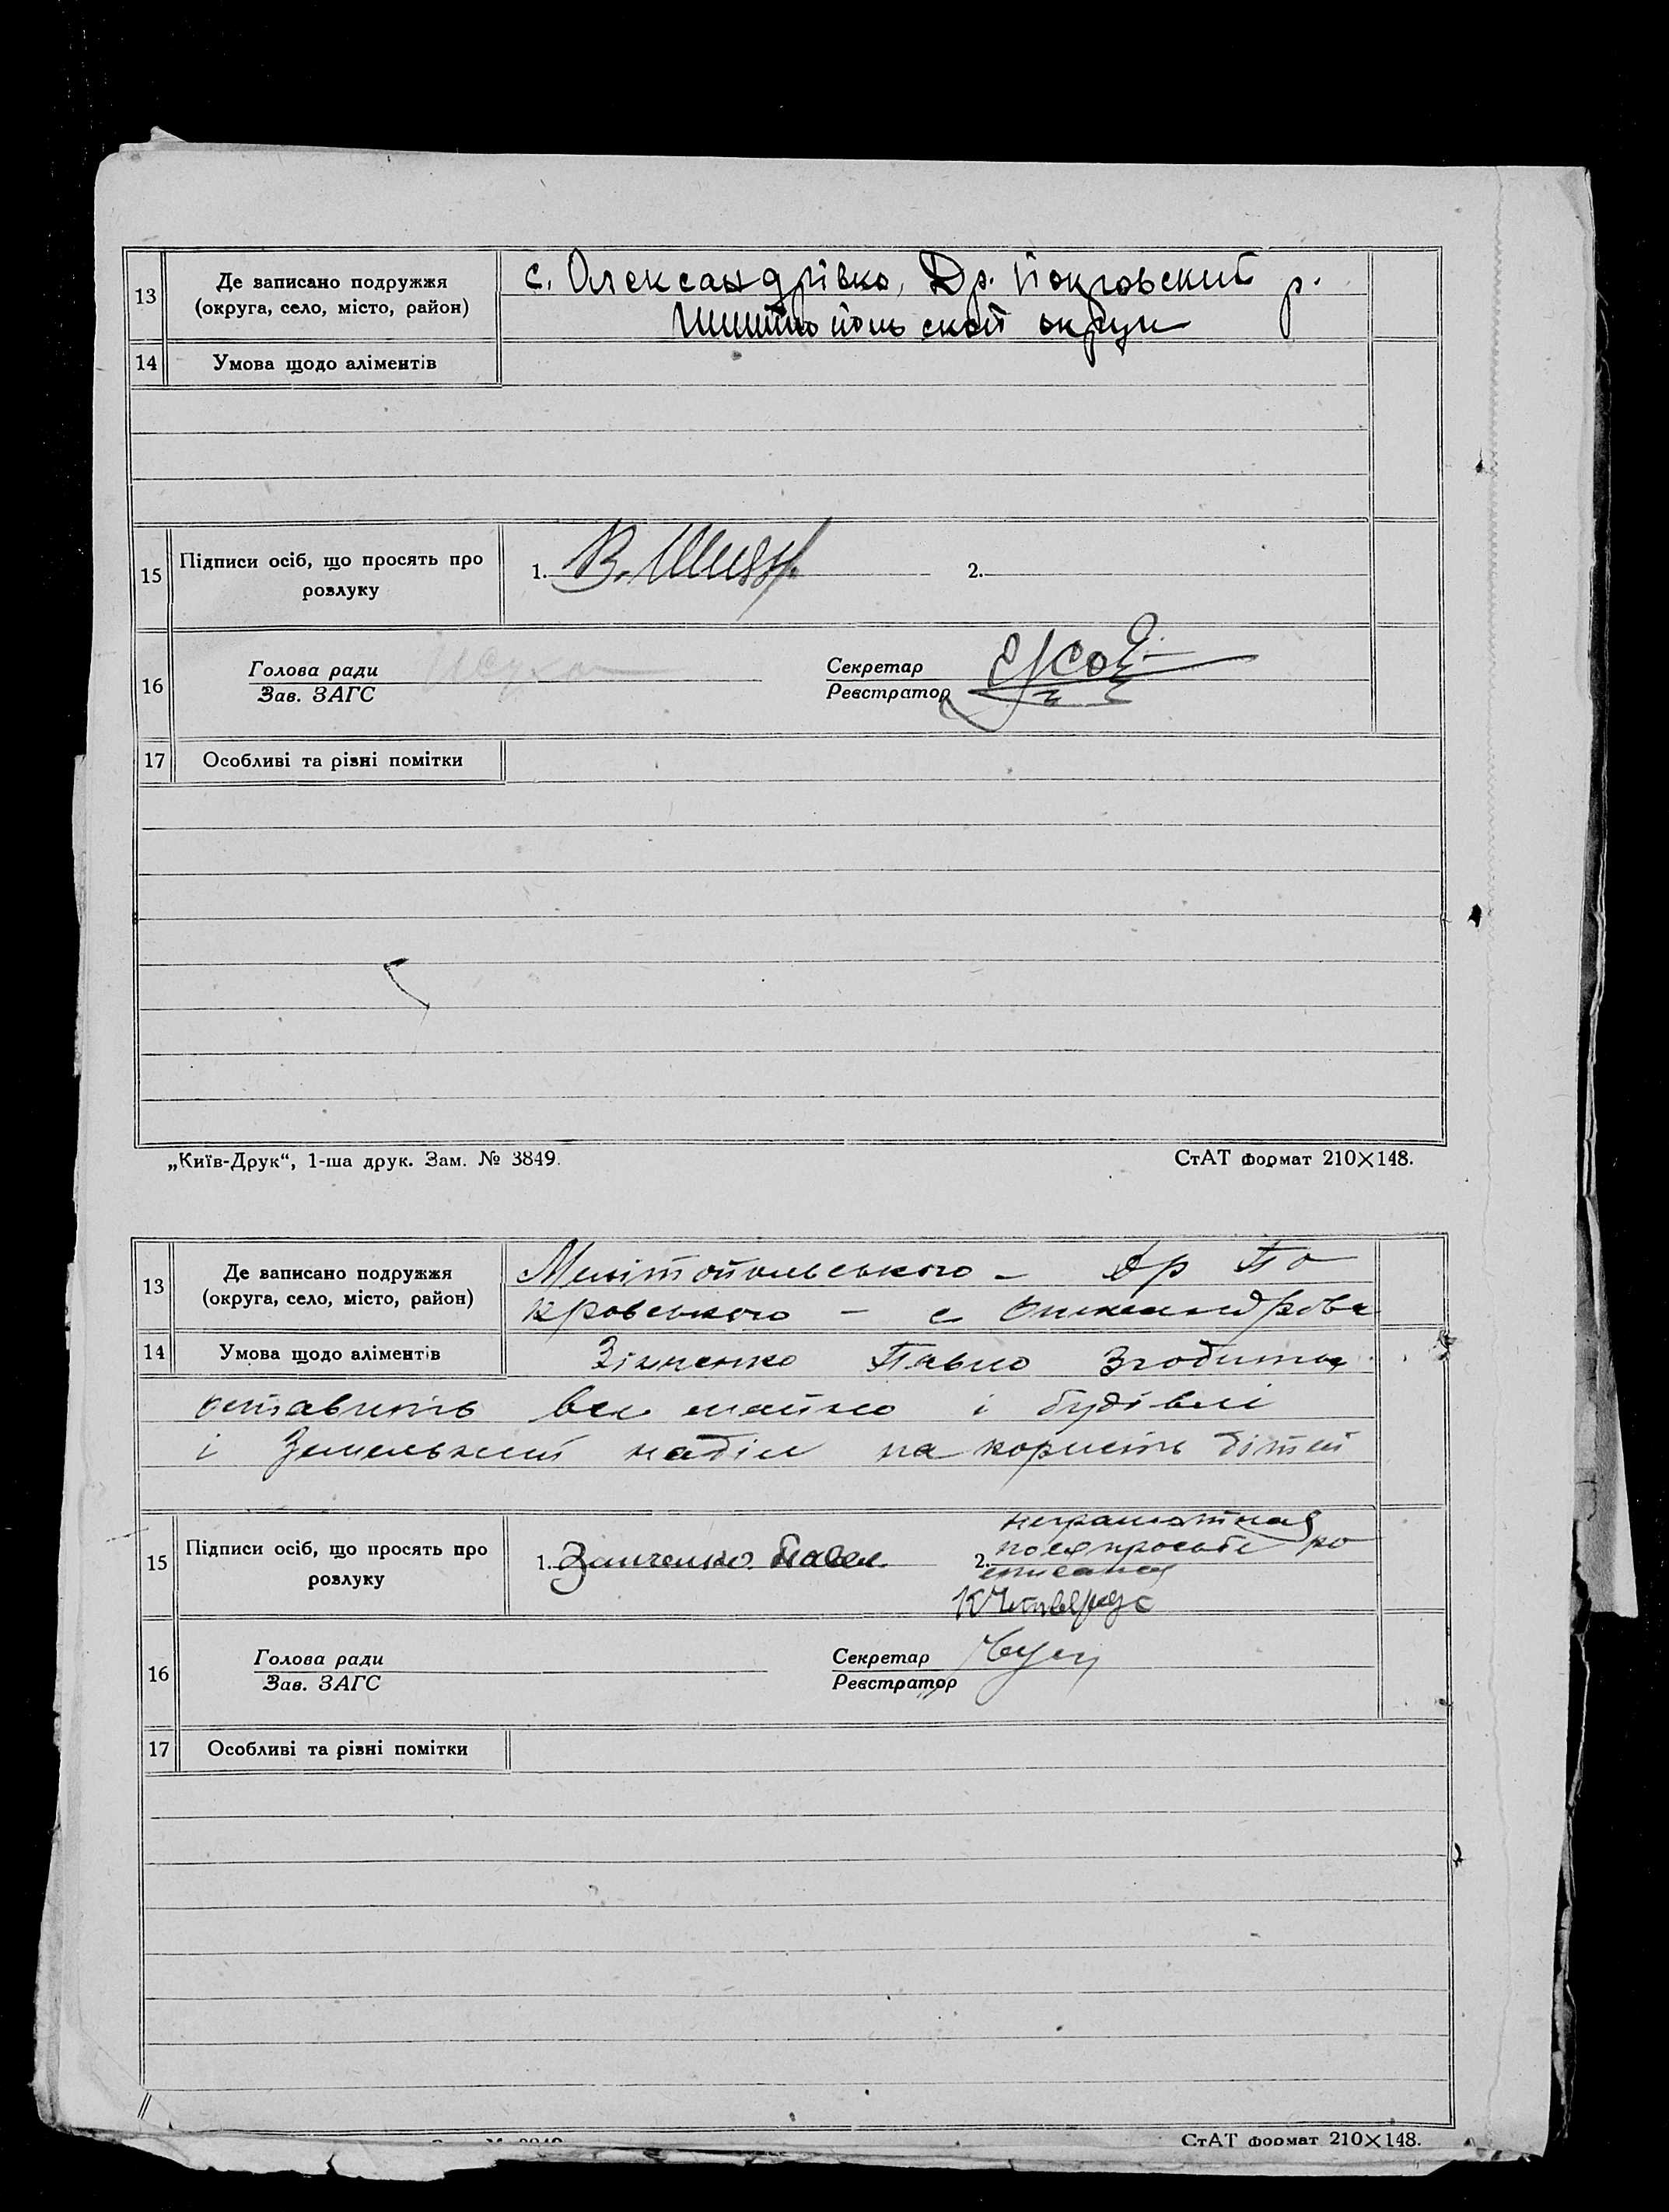 13 Де записано подружжя (округа, село, місто, район) с. Олександрівка, Др. Покровский р.
округи
14 Умова щодо аліментів
15 Підписи осіб, що просять про розлуку 1. В. 2.
16 Голова ради Секретар
Зав. ЗАГС Реєстратор
17 Особливі та різні помітки
„Київ-Друк“, 1-ша друк. Зам. № 3849. СтАТ формат 210×148.
13 Де записано подружжя (округа, село, місто, район) Мелітопольського – Др По
кровського – с
14 Умова щодо аліментів Павло Згодится
оставить все майно і будівлі
і Земельний наділ на користь дітей
15 Підписи осіб, що просять про розлуку 1. Павел 2. неграмотная
по ея просьбе ро
списался
16 Голова ради Секретар
Зав. ЗАГС Реєстратор
17 Особливі та різні помітки
СтАТ формат 210×148.